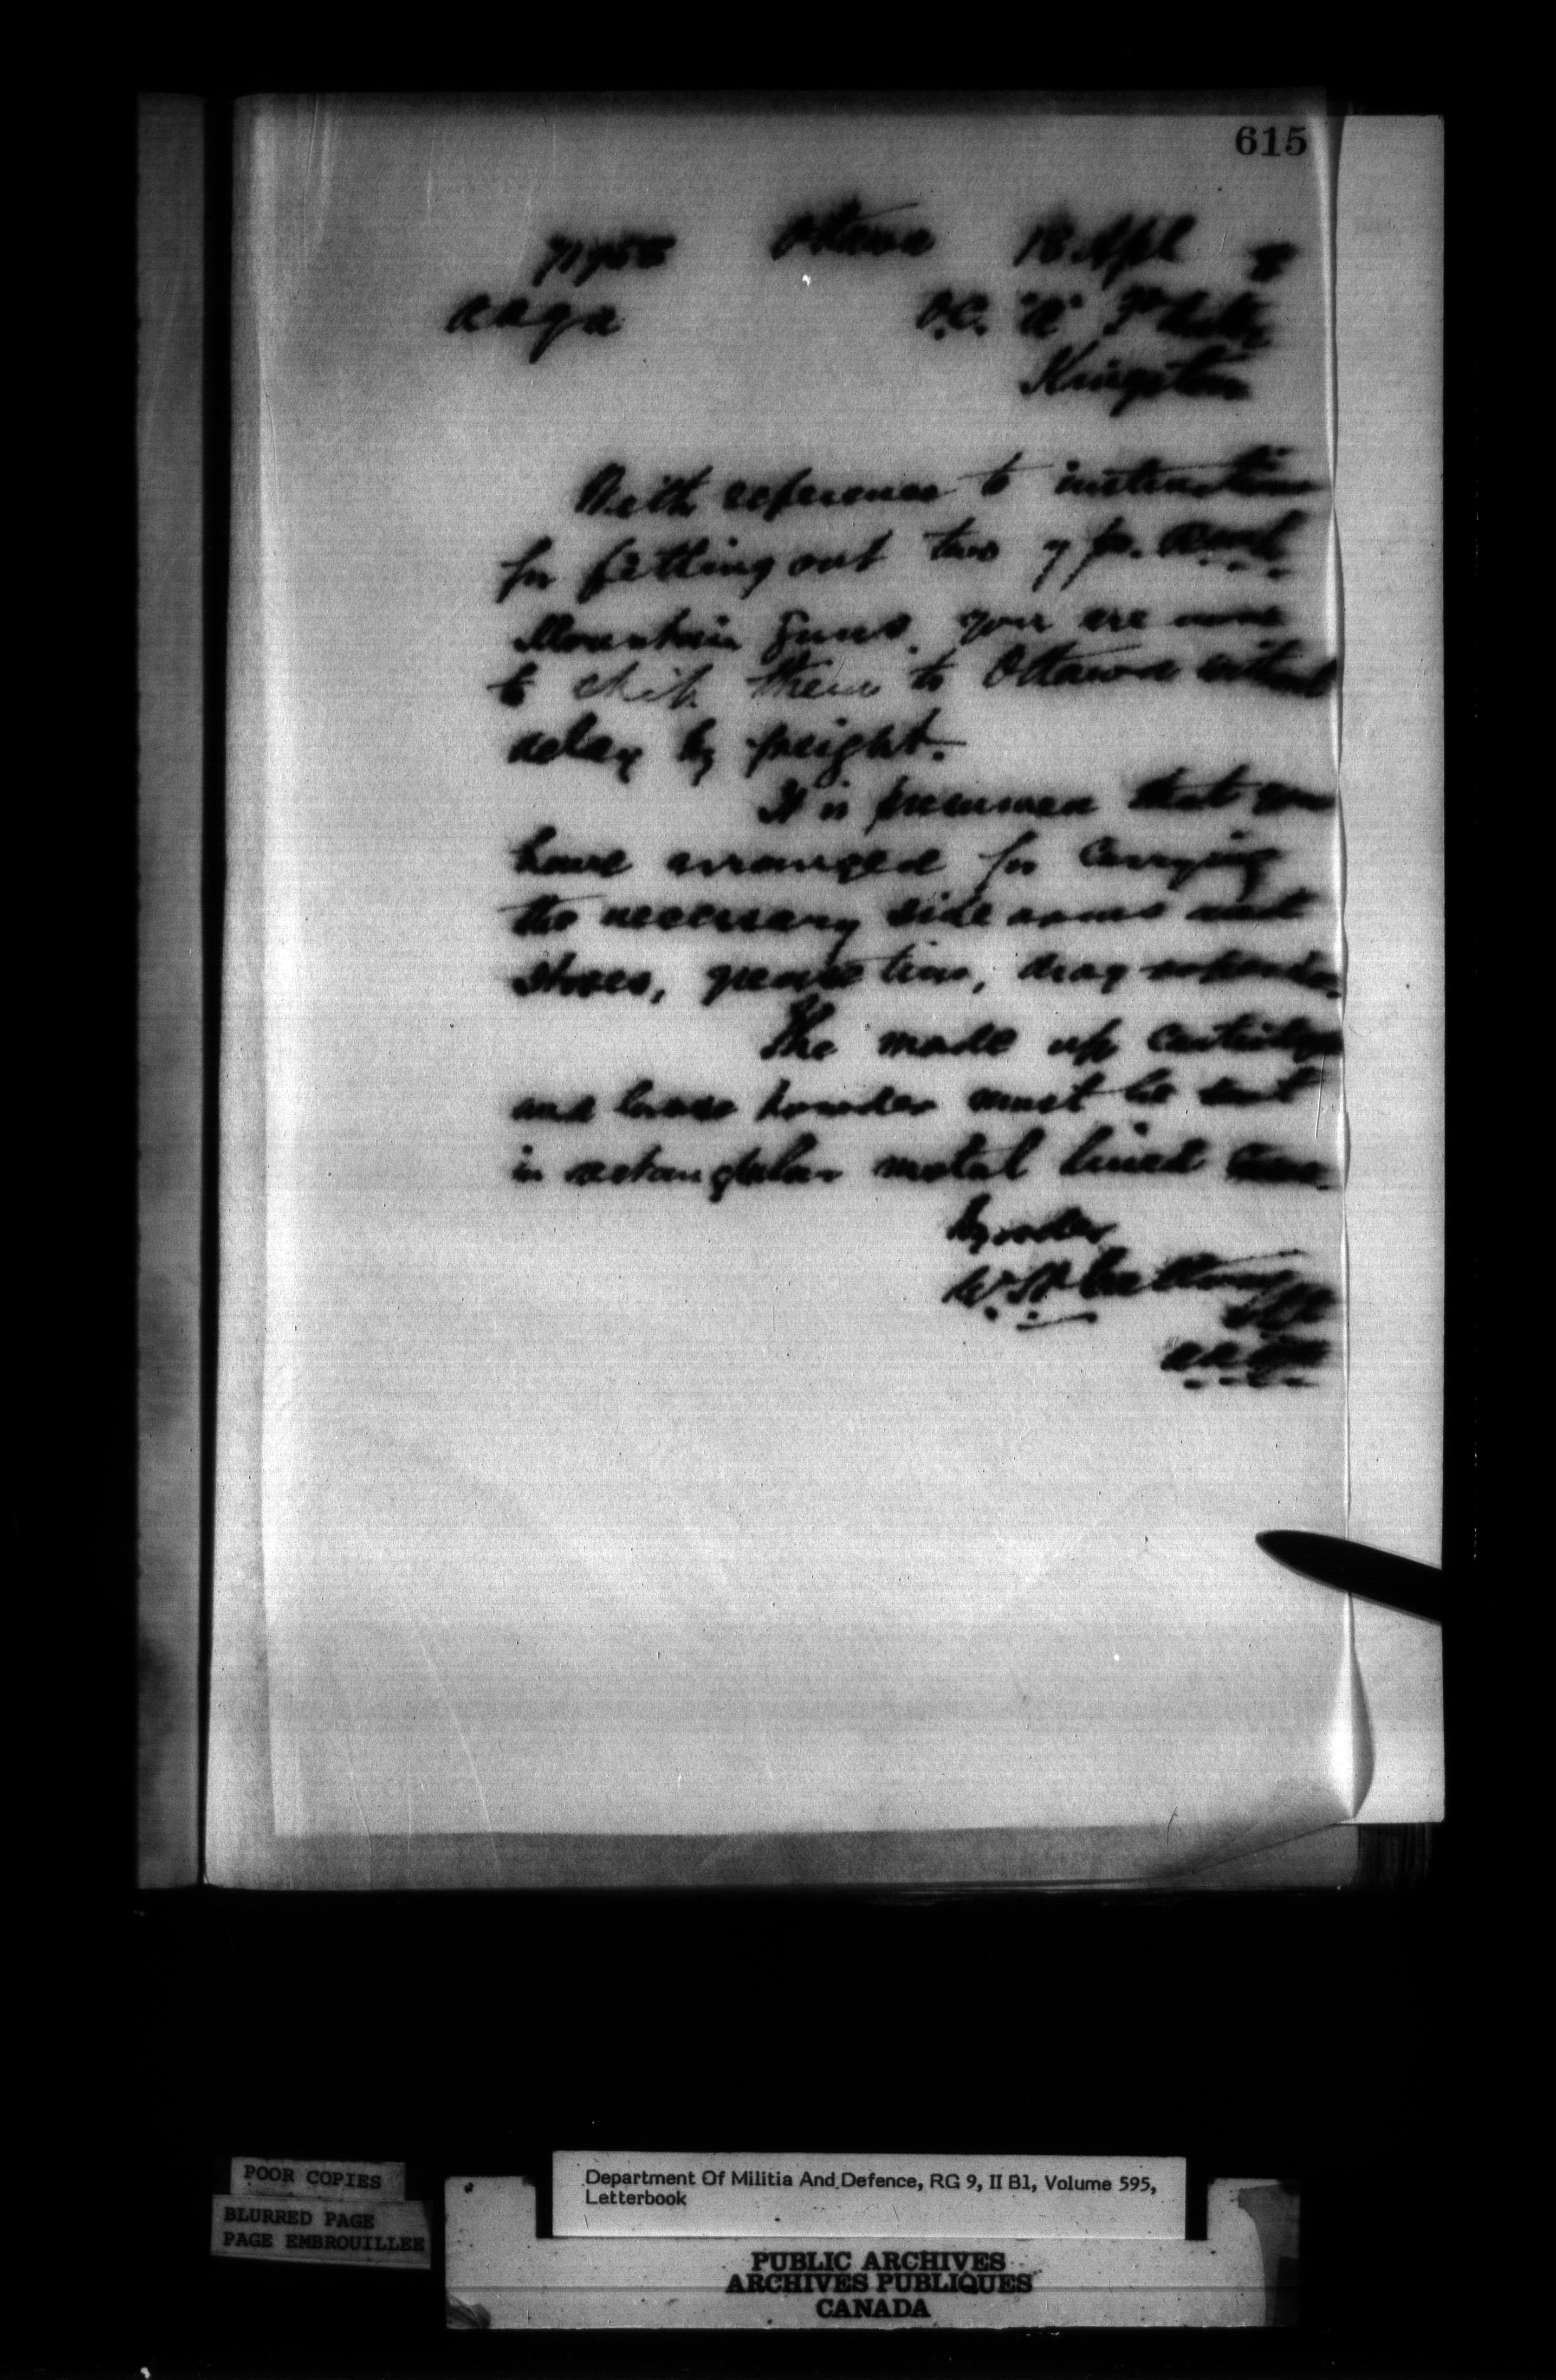 615
Ottawa 18 Apl 8
O.C. "A" Fd Baty
Kingston
With reference to instructions
for fitting out two 7 pr.
Mountain Guns. you are now
to ship them to Ottawa without
delay by freight.
It is presumed that you
have arranged for carrying
the necessary side arms and
stores, grease tins, drag
The made up cartridges
and loose powder must be sent
in rectangular metal lined cases.
By order
Department Of Militia And Defence, RG 9, II B1, Volume 595,
Letterbook
POOR COPIES
BLURRED PAGE
PAGE EMBROUILLEE
PUBLIC ARCHIVES
ARCHIVES PUBLIQUES
CANADA